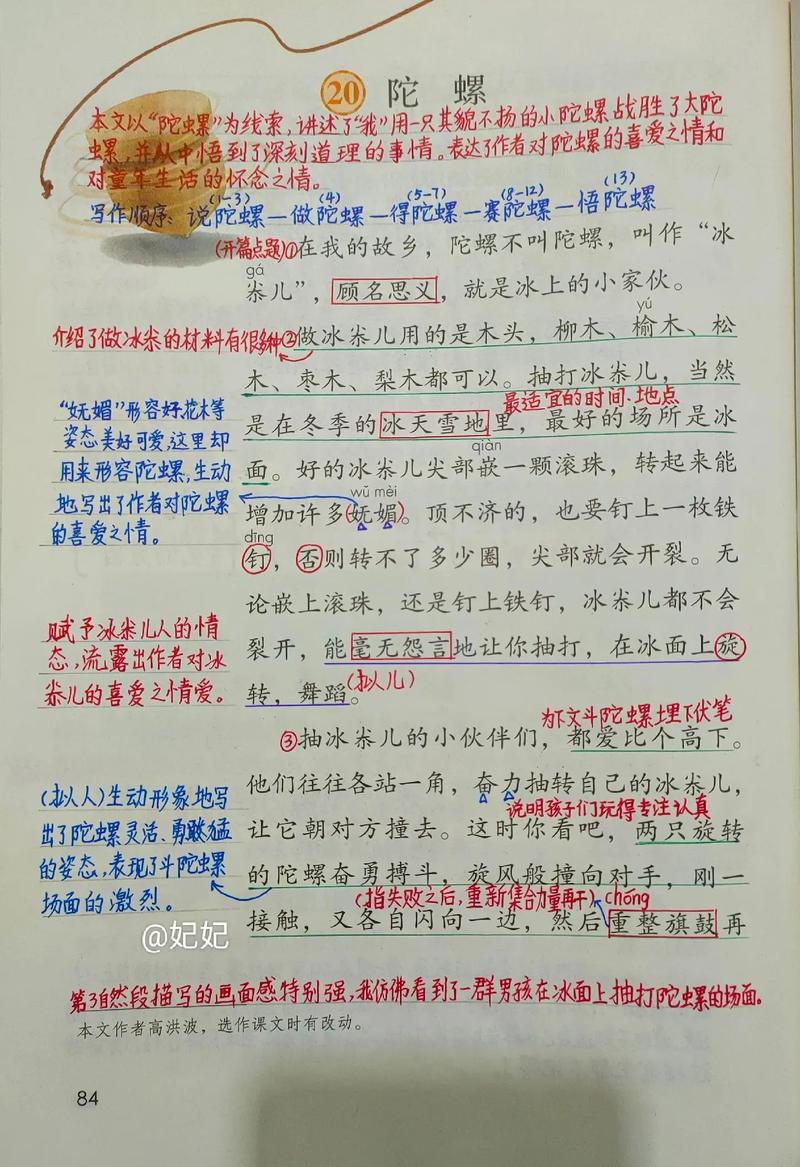 20 陀 螺
本文以“陀螺”为线索,讲述了“我”用一只其貌不扬的小陀螺战胜了大陀
螺,并从中悟到了深刻道理的事情。表达了作者对陀螺的喜爱之情和
对童年生活的怀念之情。
(1-3) (4) (5-7) (8-12) (13)
写作顺序: 说陀螺—做陀螺—得陀螺—赛陀螺—悟陀螺
(开篇点题)①在我的故乡,陀螺不叫陀螺,叫作“冰
gá
尜儿”,顾名思义,就是冰上的小家伙。
yú
介绍了做冰尜的材料有很多种②做冰尜儿用的是木头,柳木、榆木、松
木、枣木、梨木都可以。抽打冰尜儿,当然
最适宜的时间、地点
是在冬季的冰天雪地里,最好的场所是冰
qiàn
面。好的冰尜儿尖部嵌一颗滚珠,转起来能
wǔ mèi
增加许多妩媚。顶不济的,也要钉上一枚铁
dīng
钉,否则转不了多少圈,尖部就会开裂。无
论嵌上滚珠,还是钉上铁钉,冰尜儿都不会
裂开,能毫无怨言地让你抽打,在冰面上旋
转,舞蹈。(拟人)
“妩媚”形容好花木等
姿态美好可爱,这里却
用来形容陀螺,生动
地写出了作者对陀螺
的喜爱之情。
赋予冰尜儿人的情
态,流露出作者对冰
尜儿的喜爱之情爱。
为下文斗陀螺埋下伏笔
③抽冰尜儿的小伙伴们,都爱比个高下。
他们往往各站一角,奋力抽转自己的冰尜儿,
说明孩子们玩得专注认真
让它朝对方撞去。这时你看吧,两只旋转
的陀螺奋勇搏斗,旋风般撞向对手,刚一
(指失败之后,重新集合力量再干) chóng
接触,又各自闪向一边,然后重整旗鼓再
(拟人)生动形象地写
出了陀螺灵活、勇猛
的姿态,表现了斗陀螺
场面的激烈。
@妃妃
第3自然段描写的画面感特别强,我仿佛看到了一群男孩在冰面上抽打陀螺的场面。
本文作者高洪波,选作课文时有改动。
84